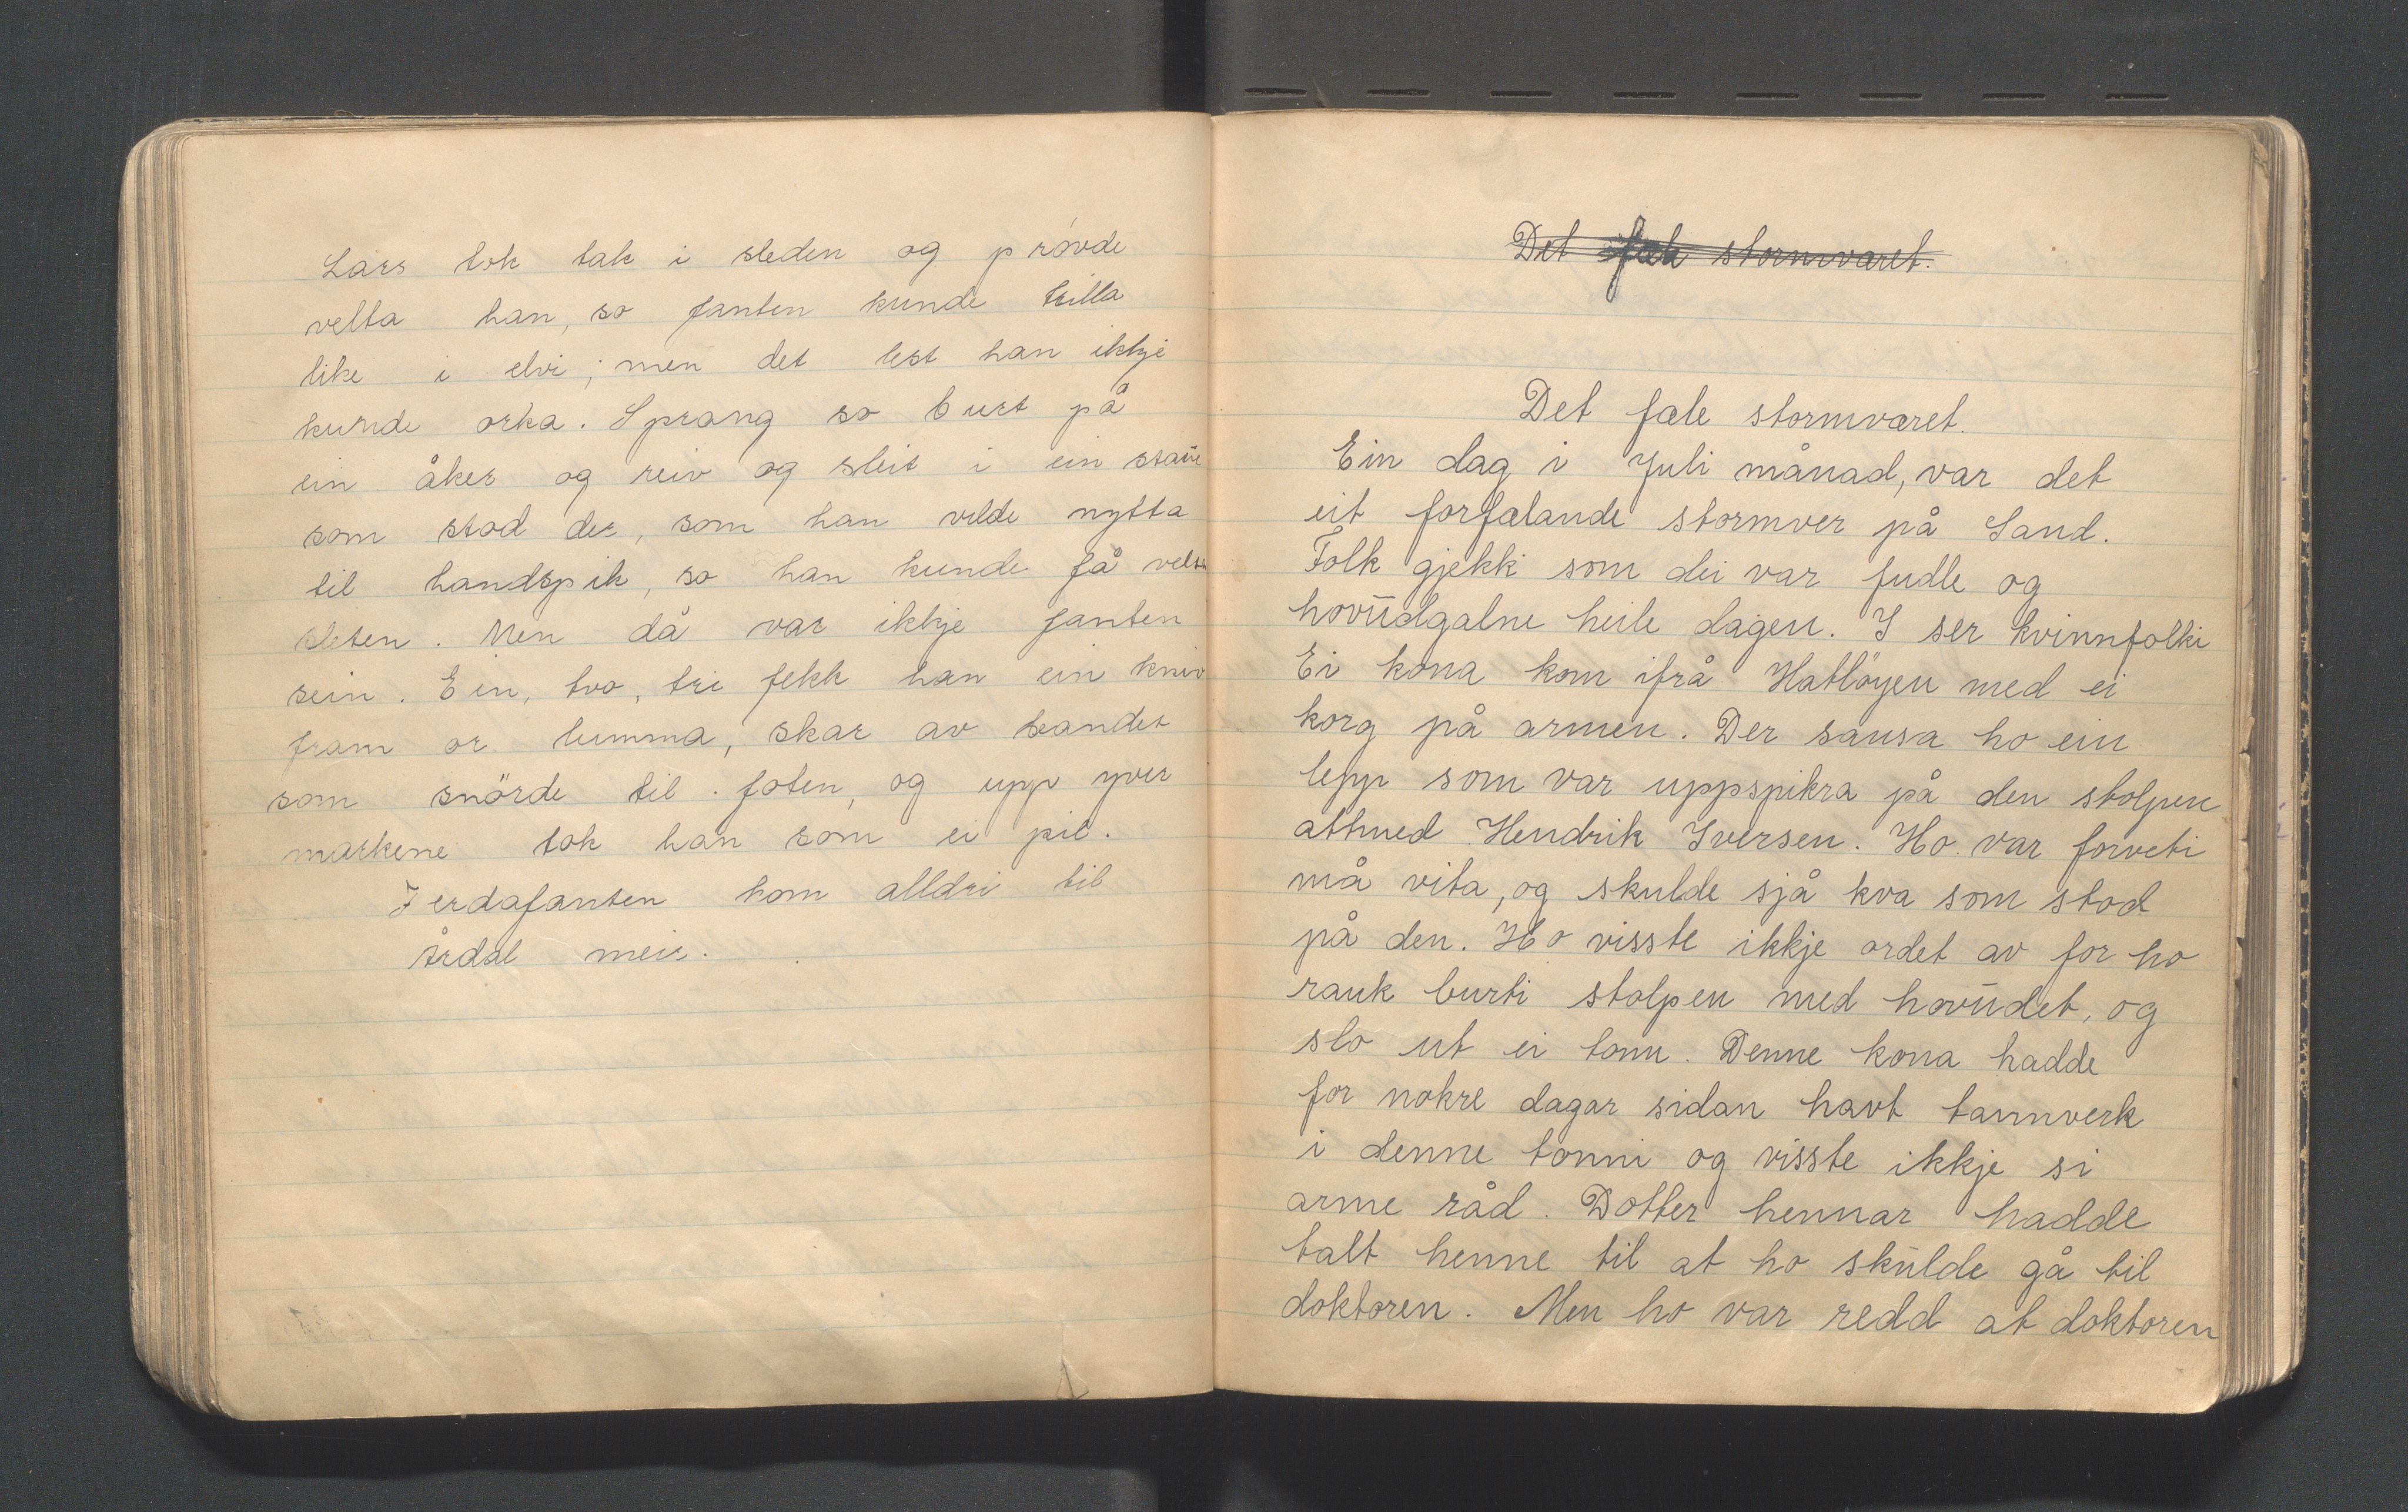 Lars tok tak i sleden og prøvde
velta han, so fanten kunde trilla
like i elvi; men det lest han ikkje
kunde orka. Sprang so burt på
ein åker og reiv og sleit i ein staur
som stod der, som han vilde nytta
til handspik, so han kunde få velta
sleten. Men då var ikkje fanten
sein. Ein, two, tri fekk han ein kniv
fram or lumma, skar av bandet
som snörde til foten, og upp yver
markene tok han som ei pil.
Jerdafanten kom alldri til
Årdal meir.
Det fæle stormværet.
Det fæle stormværet.
Ein dag i Juli månad, var det
eit forfælande stormver på Sand.
Folk gjekk som dei var fudle og
hovudgalne heile dagen. I ser kvinnfolki
Ei kona kom ifrå Hatlöyen med ei
korg på armen. Der sansa ho ein
lepp som var uppspikra på den stolpen
attmed Hendrik Iversen. Ho var forveti
må vita, og skulde sjå kva som stod
på den. Ho visste ikkje ordet av for ho
rauk burti stolpen med hovudet, og
slo ut ei tonn. Denne kona hadde
for nokre dagar sidan havt tannverk
i denne tonni og visste ikkje si
arme råd. Dotter hennar hadde
talt henne til at ho skulde gå til
doktoren. Men ho var redd at doktoren